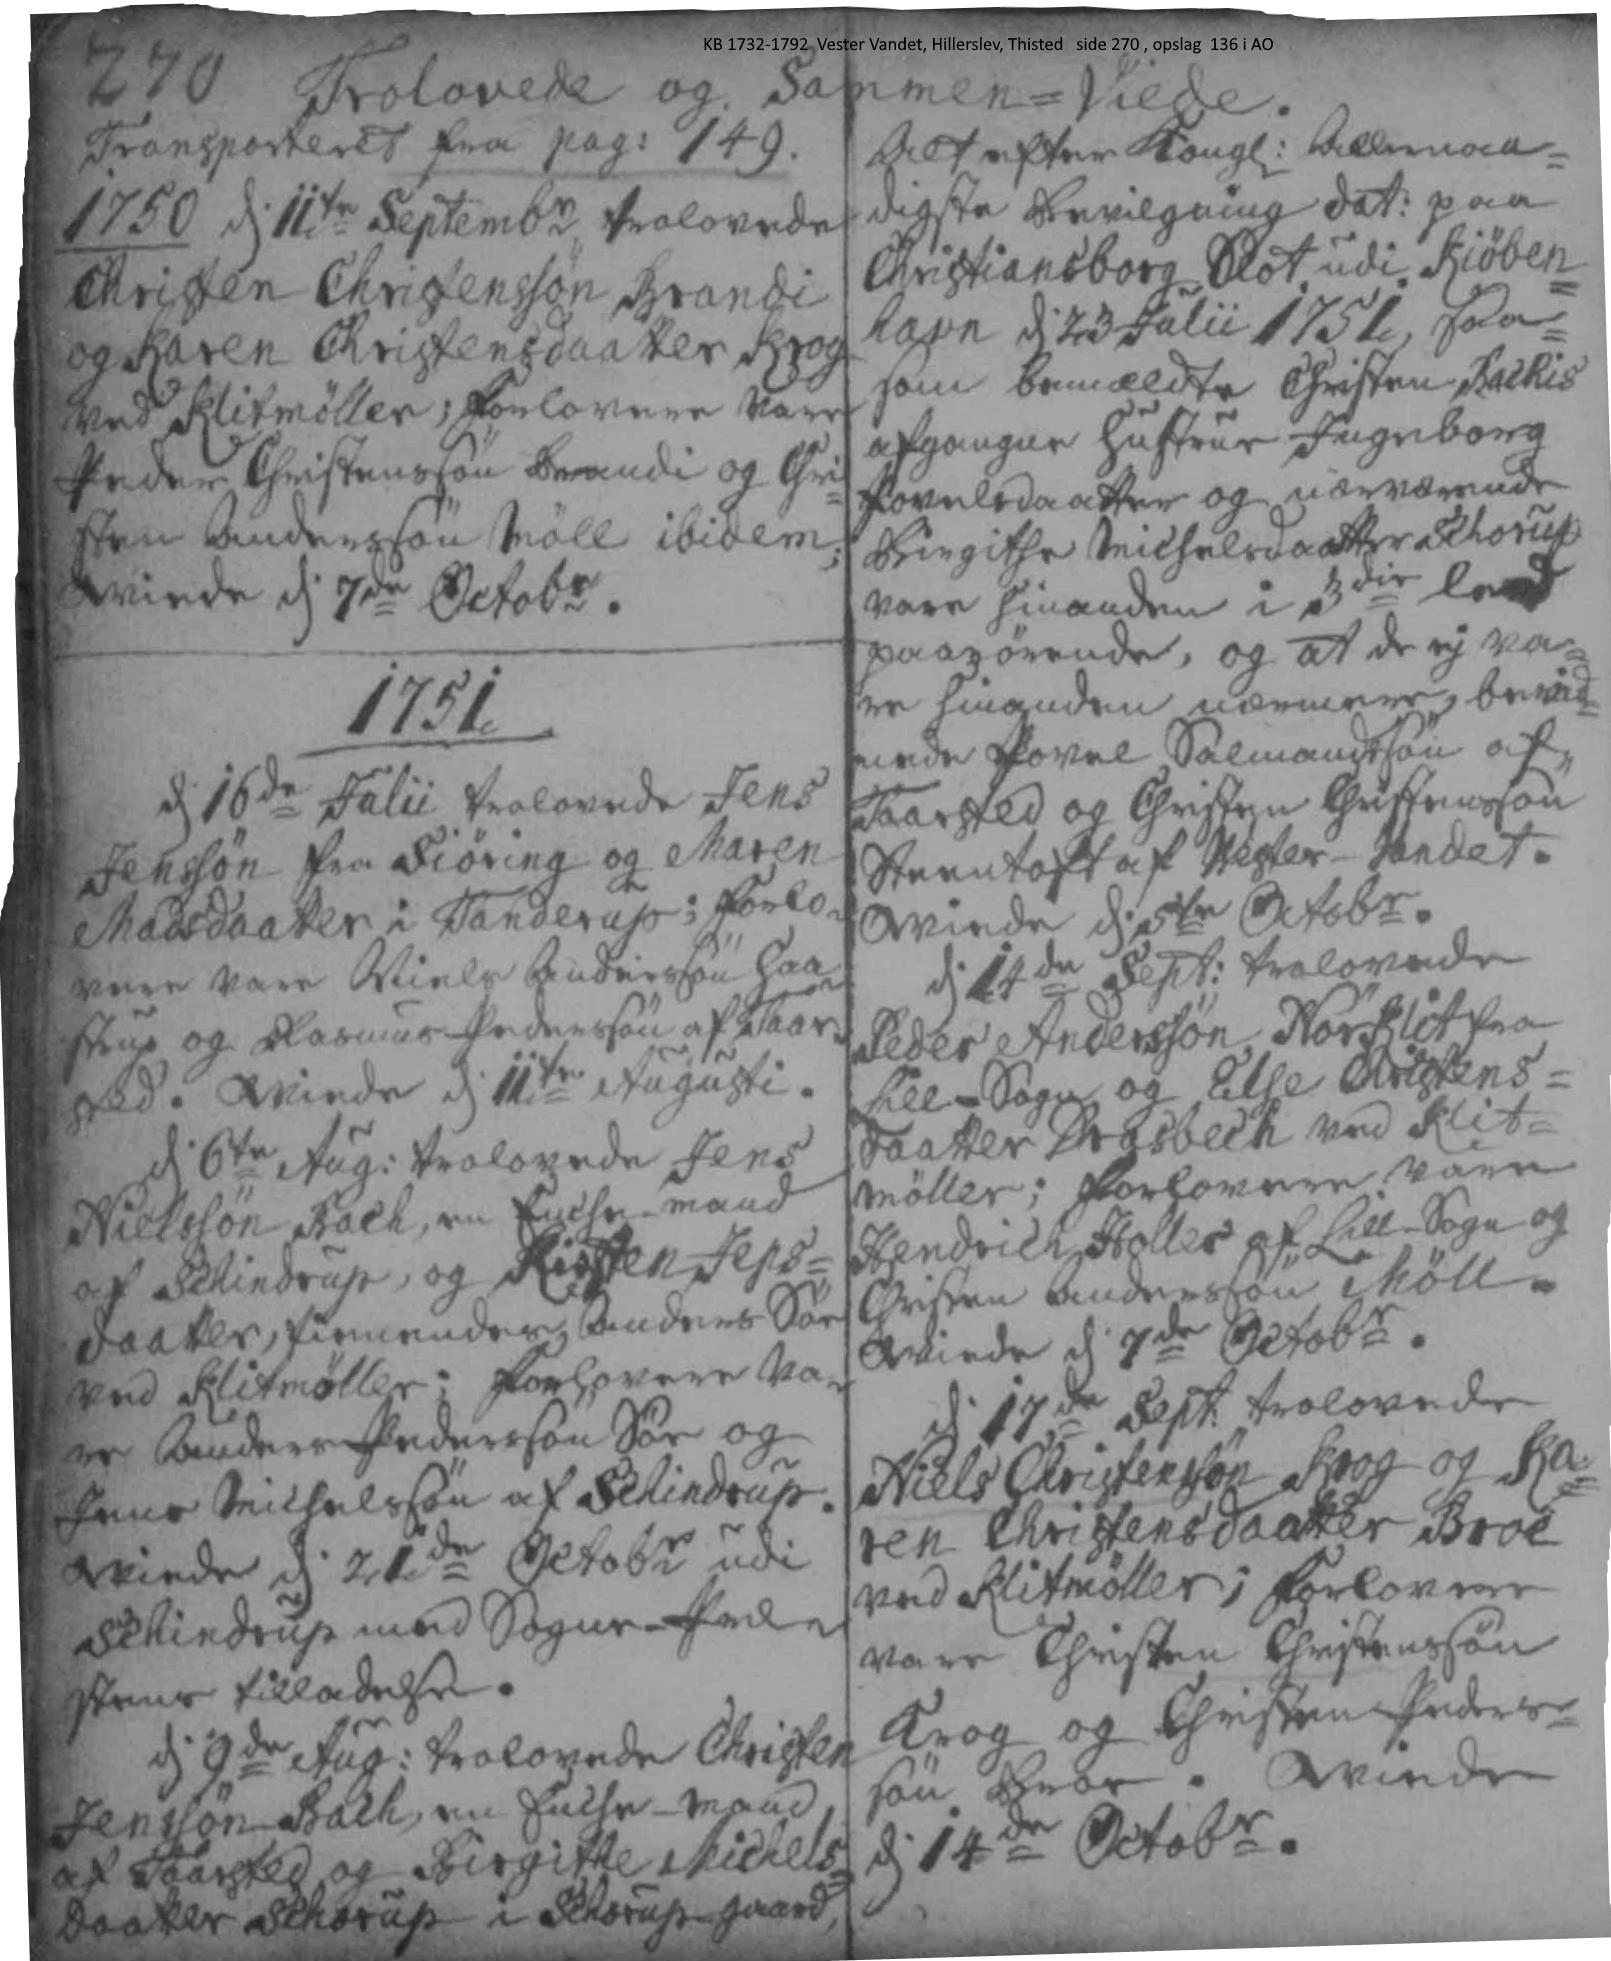 KB 1732-1792 Vester Vandet, Hillerslev, Thisted side 270 , opslag 136 i AO
270 Trolovede og Sammen=Viede.
Transporteret fra pag: 149.
1750 d: 11te Septembr trolovede
Christen Christenssön Brandi
og Karen Christensdaatter Krog
ved Klitmöller; Forlovere vare
Peder Christenssön Brandi og Chri=
sten Anderssön Möll ibidem;
Wiede d: 7de Octobr.
1751.
d: 16de Julii trolovede Jens
Jenssön fra Siöring og Maren
Madsdaatter i Tanderup; Forlo=
vere vare Niels Anderssön Haa=
strup og Rasmus Pederssön af Taar=
sted. Wiede d: 11te Augusti.
d: 6te Aug: trolovede Jens
Nielssön Bach, en Enche-mand
af Schindrup, og Kirsten Jens=
daatter, tienendes Anders Sör
ved Klitmöller; Forlovere va=
re Anders Pederssön Sör og
Jens Michelssön af Schindrup.
Wiede d: 21de Octobr udi
Schindrup med Sogne-Præ=
stens tilladelse.
d: 9de Aug: trolovede Christen
Jenssön Bach, en Enche-mand
af Taarsted og Birgithe Michels=
daatter Schorup i Schorup-gaard,
Alt efter Kongl: Allernaa=
digste Bevilgning dat: paa
Christiansborg Slot udi Kiöben=
havn d: 23 Julii 1751, saa=
som bemeldte Christen Bachis
afgangne Hustrue Ingeborg
Povelsdaatter og nærværende
Birgithe Michelsdaatter Schorup
vare hinanden i 3die leed
paarörende, og at de ej va=
re hinanden nærmere, bevid=
nede Povel Salmandssön af
Taarsted og Christen Christenssön
Steentoft af Vester-Vandet.
Wiede d: 5te Octobr.
d: 14de Sept: trolovede
Peder Anderssön Nör Klit fra
Lill-Sogn og Else Christens=
daatter Drasbech ved Klit=
möller; Forlovere vare
Hendrich Holler af Lill-Sogn og
Christen Anderssön Möll.
Wiede d: 7de Octobr.
d: 17de Sept: trolovede
Niels Christenssön Krog og Ka=
ren Christensdaatter Broe
ved Klitmöller; Forlovere
vare Christen Christenssön
Krog og Christen Peders=
sön Broe. Wiede
d: 14de Octobr.